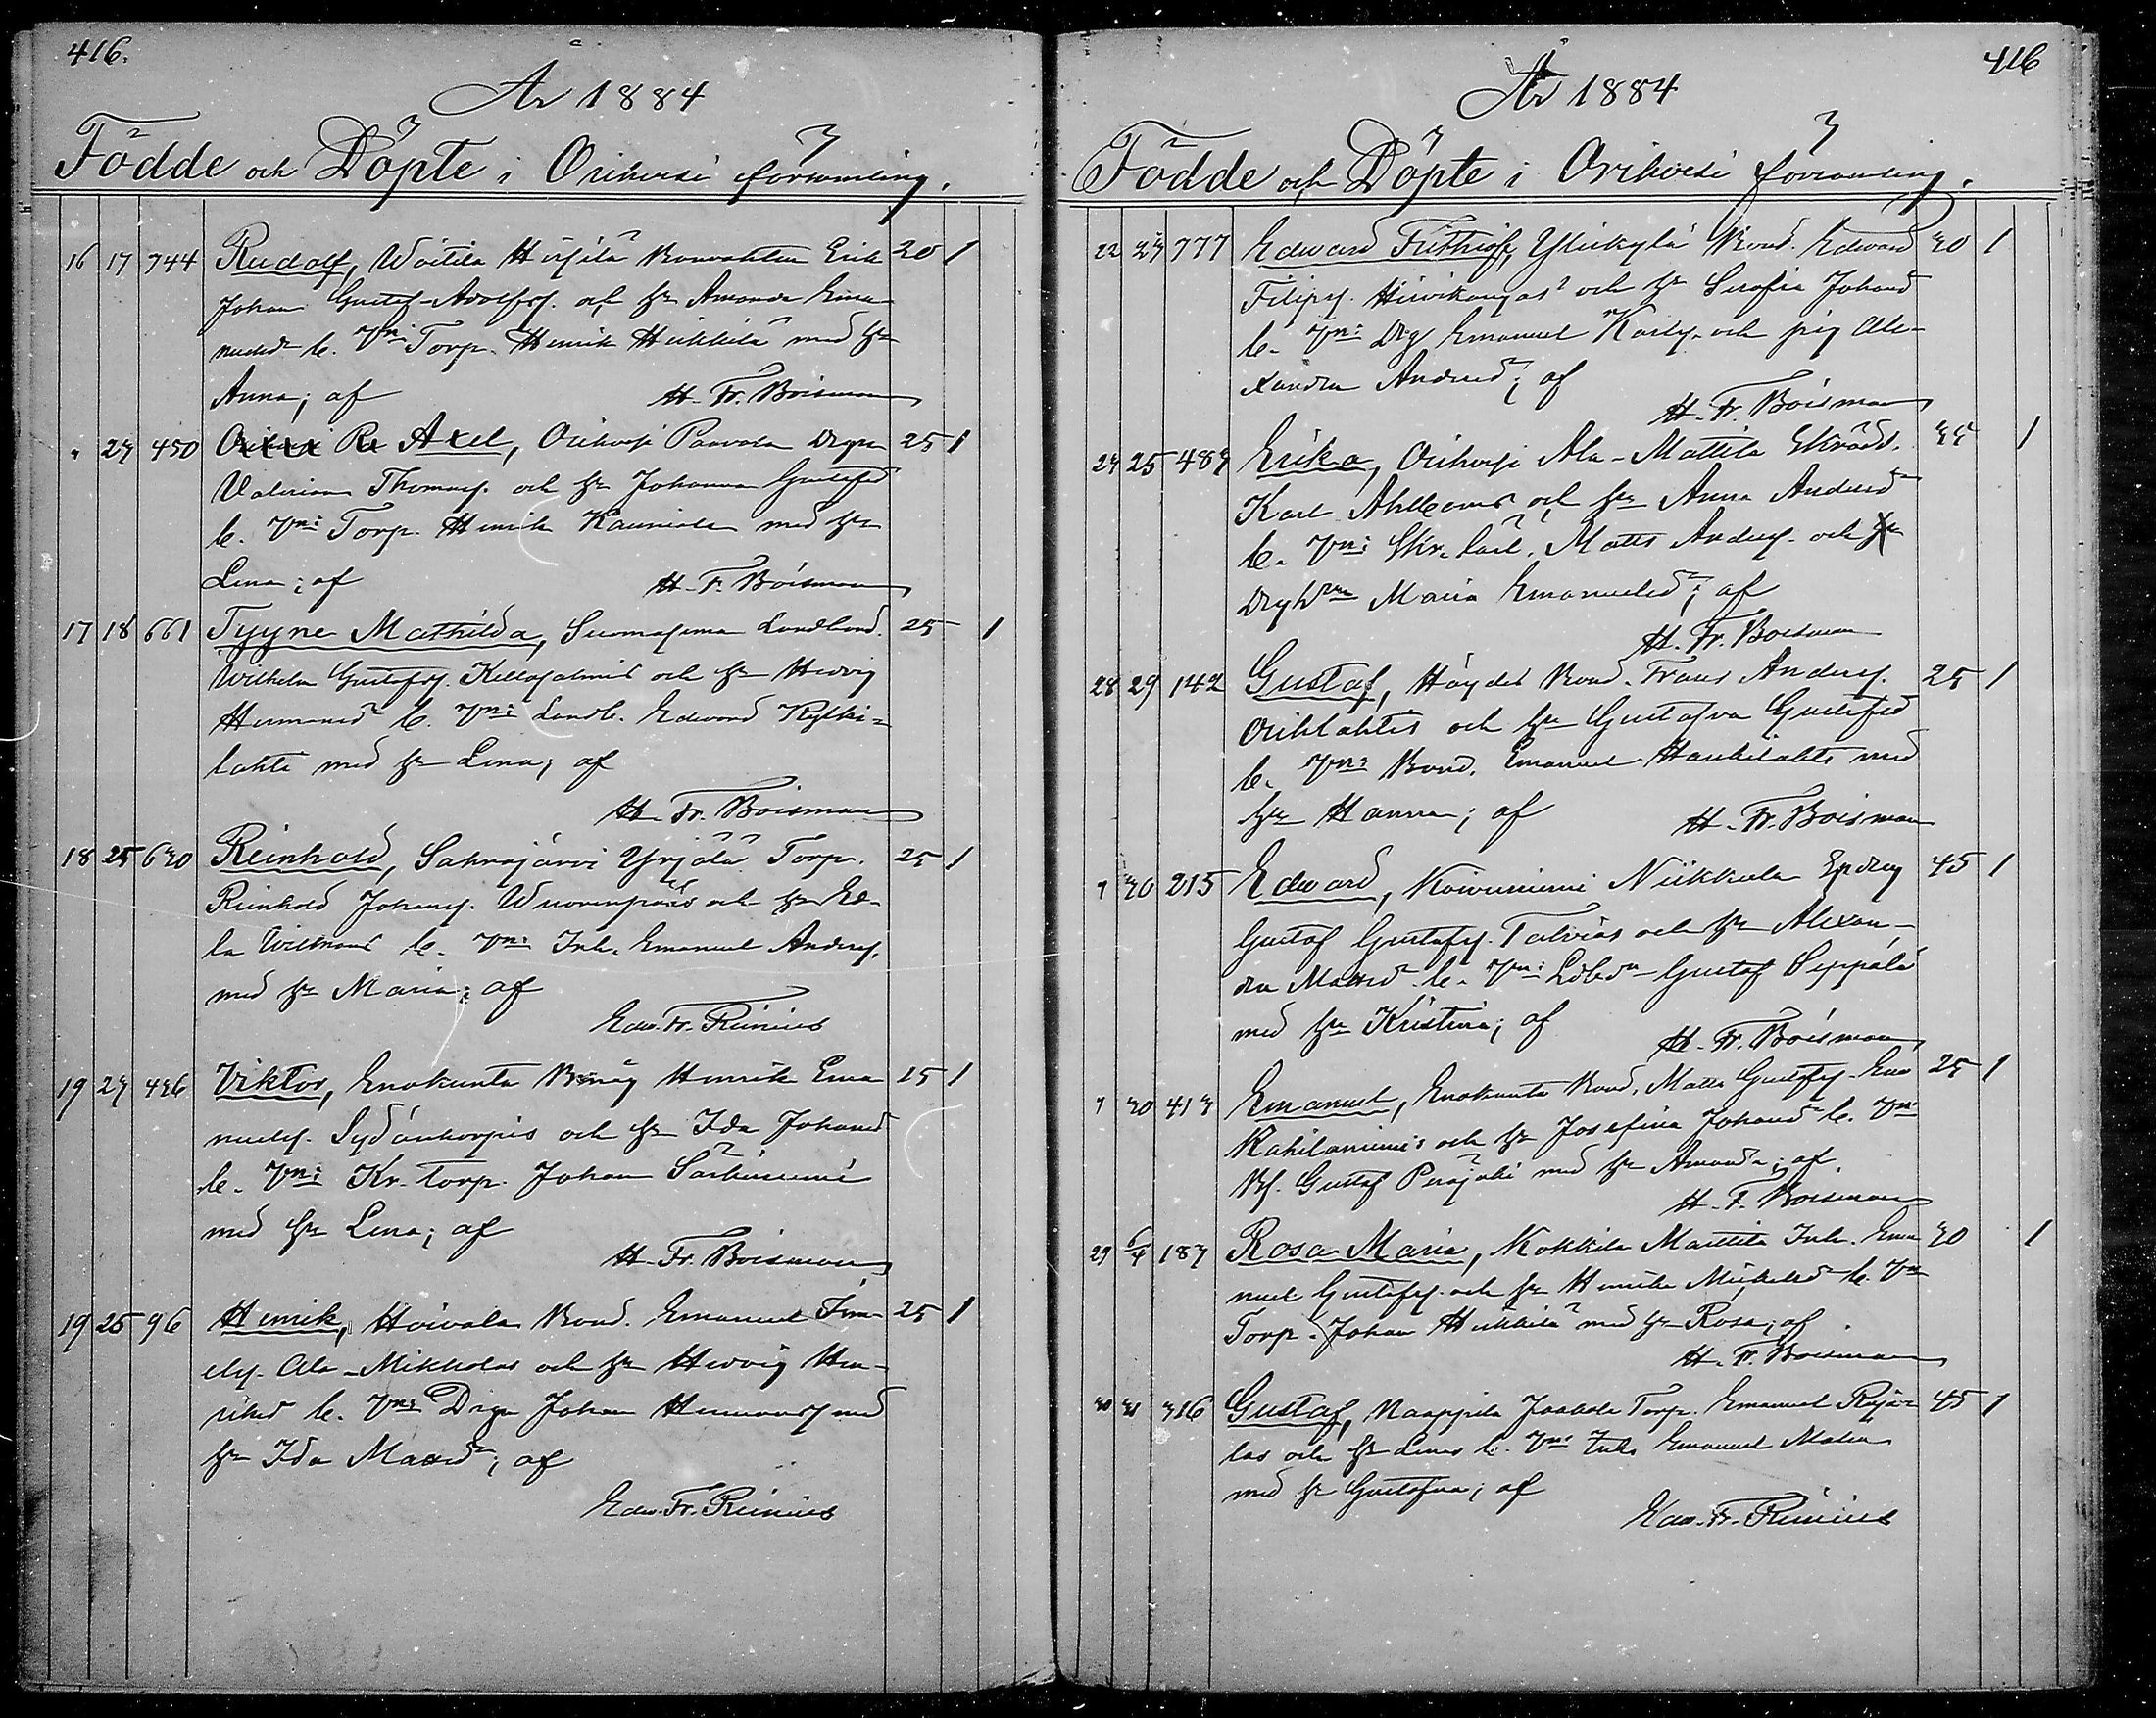 416.
År 1884
Födde och Döpte i Orihvesi församling.
16 17 744 Rudolf, Woitila Hirsilä Banvakten Erik 30 1
Johan Gustaf-Adolfsn. och hn Amanda Ema-
nuelsdr l. Vn: Torp. Henrik Heikkilä med hn
Anna; af H. Fr. Boisman
" 23 450 Axel, Orihvesi Paavola Drgn 25 1
Valerian Thomass. och hn Johanna Gustafsd
l. Vn: Torp. Henrik Kauniala med hn
Lena; af H. F. Boisman
17 18 661 Tyyne Mathilda, Suomasema Landbond. 25 1
Wilhelm Gustafss. och hn Hedvig
Hermansdr l. Vn: Landb. Edward Kylki-
lahti med hn Lena; af
H. Fr. Boisman
18 25 630 Reinhold, Sahrajärvi Yrjölä Torp. 25 1
Reinhold Johanss. Wuorenpääs och hn Ed-
la Wilhmsd l. Vn: Inh. Emanuel Anderss.
med hn Maria; af
Edv. Fr. Reinius
19 23 436 Viktor, Enokunta Bmåg Henrik Ema- 25 1
nuelss. Sydänkorpis och hn Ida Johansd
l. Vn: Kr. Torp. Johan
med hn Lena; af
H. Fr. Boisman
19 25 96 Henrik, Hoivala Bond. Emanuel Sim-
elss. Ala-Mikkolas och hn Hedvig Hen- 25 1
riksd l. Vn: Drgn Johan Hermanss med
hn Ida Mattsdr; af
Edv. Fr. Reinius
416
År 1884
Födde och Döpte i Orihvesi församling.
22 23 777 Edward Frithiof, Ylikylä Bond. Edward 30 1
Filipss. Hirvikangas och hn Serafia Johansd
l. Vn: Drg Emanuel Karlss. och pig. Ale-
xandra Andersdr; af
H. Fr. Boisman
23 25 483 Erika, Orihvesi Ala-Mattila Skrädd. 35 1
Karl och hn Anna Andersdr
l. Vn: Skr. Matts Anderss. och
Maria Emanuelsdr; af
H. Fr. Boisman
28 29 142 Gustaf, Haydet Bond. Frans Anderss. 25 1
Orihlahtis och hn Gustafva Gustafsd
l. Vn: Bond. Emanuel Haukilahti med
hn Hanna; af H. Fr. Boisman
" 30 215 Edward, Koivuniemi Niikkula 45 1
Gustaf Gustafss. Talvias och hn Alexan-
dra Mattsdr l. Vn: Gustaf Seppälä
med hn Kristina; af H. Fr. Boisman
" 30 413 Emanuel, Enokunta Bond. Matts Gustafss. 25 1
och hn Josefina Johansdr l. Vn:
Bf. Gustaf Peräjoki med hn Amanda; af
H. F. Boisman
29 6/4 183 Rosa Maria, Kokkila Marttila Inh. Ema- 30 1
nuel Gustafss. och hn Henrika Mickelsdr l. Vn
Torp. Johan Heikkilä med hn Rosa; af
H. Fr. Boisman
30 31 316 Gustaf, Naappila Jaakola Torp. Emanuel 45 1
och hn Lena l. Vn: Inh. Emanuel
med hn Gustafva; af
Edv. Fr. Reinius